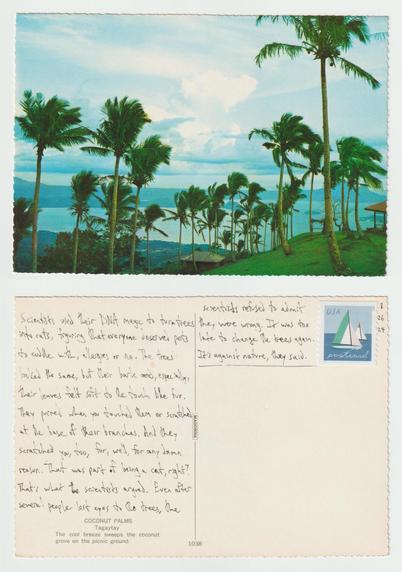 Scientists used their DNA magic to turn trees
into cats, figuring that everyone deserved pets
to cuddle with, allergies or no. The trees
looked the same, but their bark and, especially,
their leaves felt soft to the touch like fur.
They purred when you touched them or scratched
at the base of their branches. And they
scratched you, too, for, well, for any damn
reason. That was part of being a cat, right?
That's what the scientists argued. Even after
several people lost eyes to the trees, the
scientists refused to admit
they were wrong. It was too
late to change the trees again.
It's against nature, they said.
USA
postcard
8
26
24
COCONUT PALMS
Tagaytay
The cool breeze sweeps the coconut
grove on the picnic ground.
1038